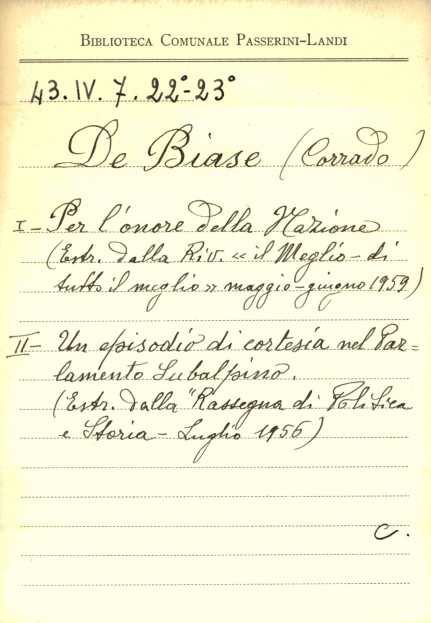 BIBLIOTECA COMUNALE PASSERINI-LANDI
43. IV. 7. 22°-23°
De Biase (Corrado)
I - Per l'onore della Nazione
(Estr. dalla Riv. « il Meglio - di
tutto il meglio » maggio-giugno 1959)
II - Un episodio di cortesia nel Par=
lamento Subalpino.
(Estr. dalla "Rassegna di Politica
e Storia - Luglio 1956)
C.